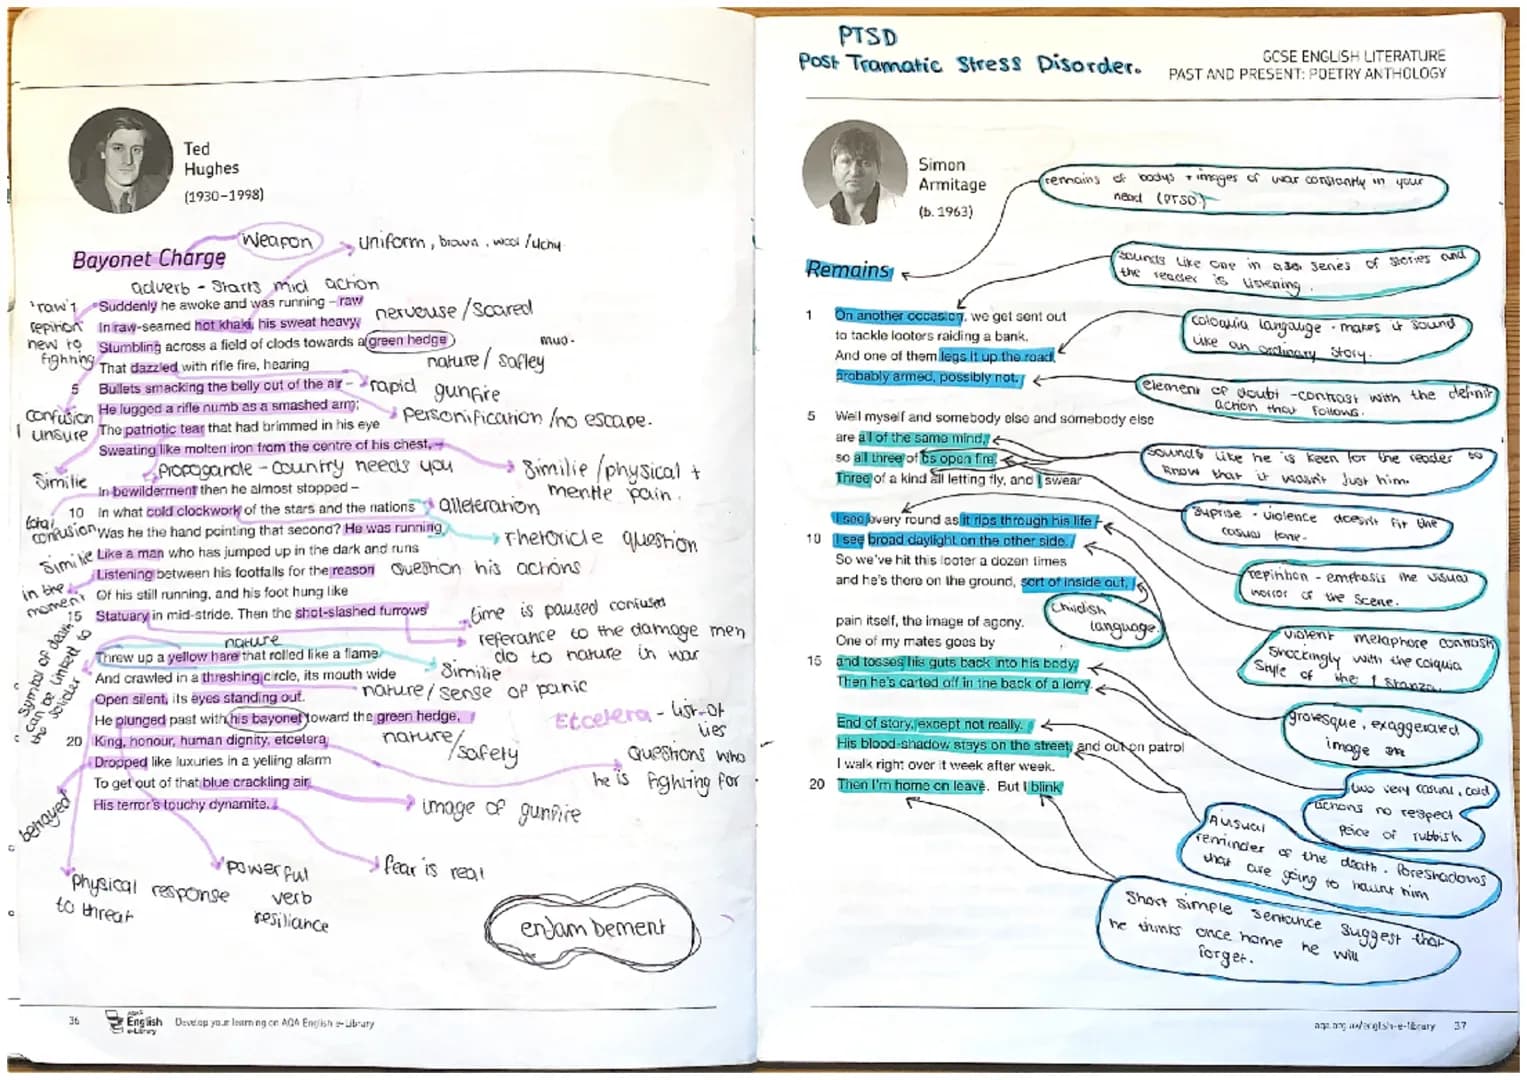 Ted
Hughes
(1930–1998)
Weapon
uniform, brown, wool/itchy
Bayonet Charge
adverb - Starts mid action
'raw'?
repition
new to
fighting
Suddenly he awoke and was running – raw
In raw-seamed hot khaki, his sweat heavy,
Stumbling across a field of clods towards a green hedge
That dazzled with rifle fire, hearing
5 Bullets smacking the belly out of the air –
He lugged a rifle numb as a smashed arm;
The patriotic tear that had brimmed in his eye
Sweating like molten iron from the centre of his chest, –
nervouse/Scared
mud.
nature/ safley
rapid gunfire
Personification/no escape.
confusion
unsure
Similie
Propogande - country needs you
Similie/physical +
mentle pain.
In bewilderment then he almost stopped –
10 In what cold clockwork of the stars and the nations
Was he the hand pointing that second? He was running
Like a man who has jumped up in the dark and runs
Listening between his footfalls for the reason
Of his still running, and his foot hung like
15 Statuary in mid-stride. Then the shot-slashed furrows
alleteration
total
confusion
rhetoricle question
Similie
question his actions
in the
moment
time is paused confused
referance to the damage men
do to nature in war
nature
Threw up a yellow hare that rolled like a flame
And crawled in a threshing circle, its mouth wide
Open silent, its eyes standing out.
He plunged past with his bayonet toward the green hedge,
20 King, honour, human dignity, etcetera
Dropped like luxuries in a yelling alarm
To get out of that blue crackling air
His terror's touchy dynamite.
Similie
nature/sense of panic
symbol of death
can be linked to
the solider
Etcetera - list-of
lies
nature/
safety
Questions who
he is fighting for
betrayed
image of gunfire
fear is real
powerful
verb
resiliance
physical response
to threat
enjambement
36
AQA
English
e-Library
Develop your learning on AQA English e-Library
PTSD
Post Tramatic Stress Disorder.
GCSE ENGLISH LITERATURE
PAST AND PRESENT: POETRY ANTHOLOGY
Simon
Armitage
(b. 1963)
remains of bodys + images of war constantly in your
head (PTSD)
Remains
sounds like one in a series of stories and
the reader is listening.
1 On another occasion, we get sent out
to tackle looters raiding a bank.
And one of them legs it up the road,
probably armed, possibly not.
coloquia langauge - makes it sound
like an ordinary story.
element of doubt - contrast with the definit
action that follows.
5 Well myself and somebody else and somebody else
are all of the same mind,
so all three of us open fire.
Three of a kind all letting fly, and I swear
sounds like he is keen for the reader to
know that it wasnt just him.
suprise - violence doesnt fit the
casual tone.
I see every round as it rips through his life –
10 I see broad daylight on the other side.
So we've hit this looter a dozen times
and he's there on the ground, sort of inside out,
repition - emphasis the visual
horror of the scene.
Childish
language.
violent metaphore contrasts
shockingly with the coloquia
style of the 1 stanza.
pain itself, the image of agony.
One of my mates goes by
15 and tosses his guts back into his body.
Then he's carted off in the back of a lorry.
grotesque, exaggerated
image
End of story, except not really.
His blood-shadow stays on the street, and out on patrol
I walk right over it week after week.
20 Then I'm home on leave. But I blink
two very casual, cold
actions no respect
peice of rubbish
A visual
reminder of the death. foreshadows
that are going to haunt him
Short simple sentance suggest that
he thinks once home he will
forget.
aqa.org.uk/english-e-library 37